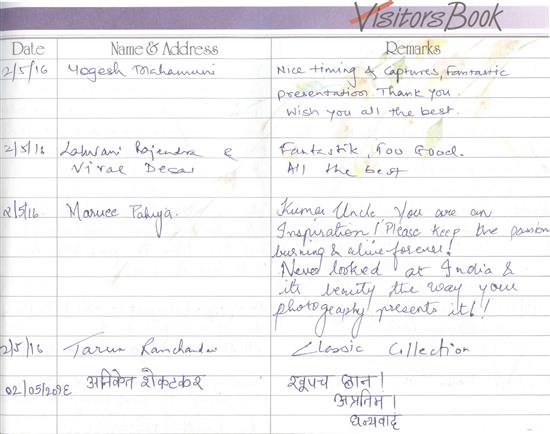 Visitors Book
Date Name & Address Remarks
2/5/16 Yogesh Mahamuni Nice timing & Captures, Fantastic
presentation. Thank you.
Wish you all the best.
2/5/16 Rajendra & Fantastik, Too Good.
Viral Desai All the best
2/5/16. Kumar Uncle You are an
Inspiration! Please keep the passion
burning & alive forever!
Never looked at India &
its the way your
photography presents it!!
2/5/16 Tarun Ramchandar Classic Collection
02/05/२०१६ अनिकेत शेकटकर खूपच छान!
अप्रतिम।
धन्यवाद